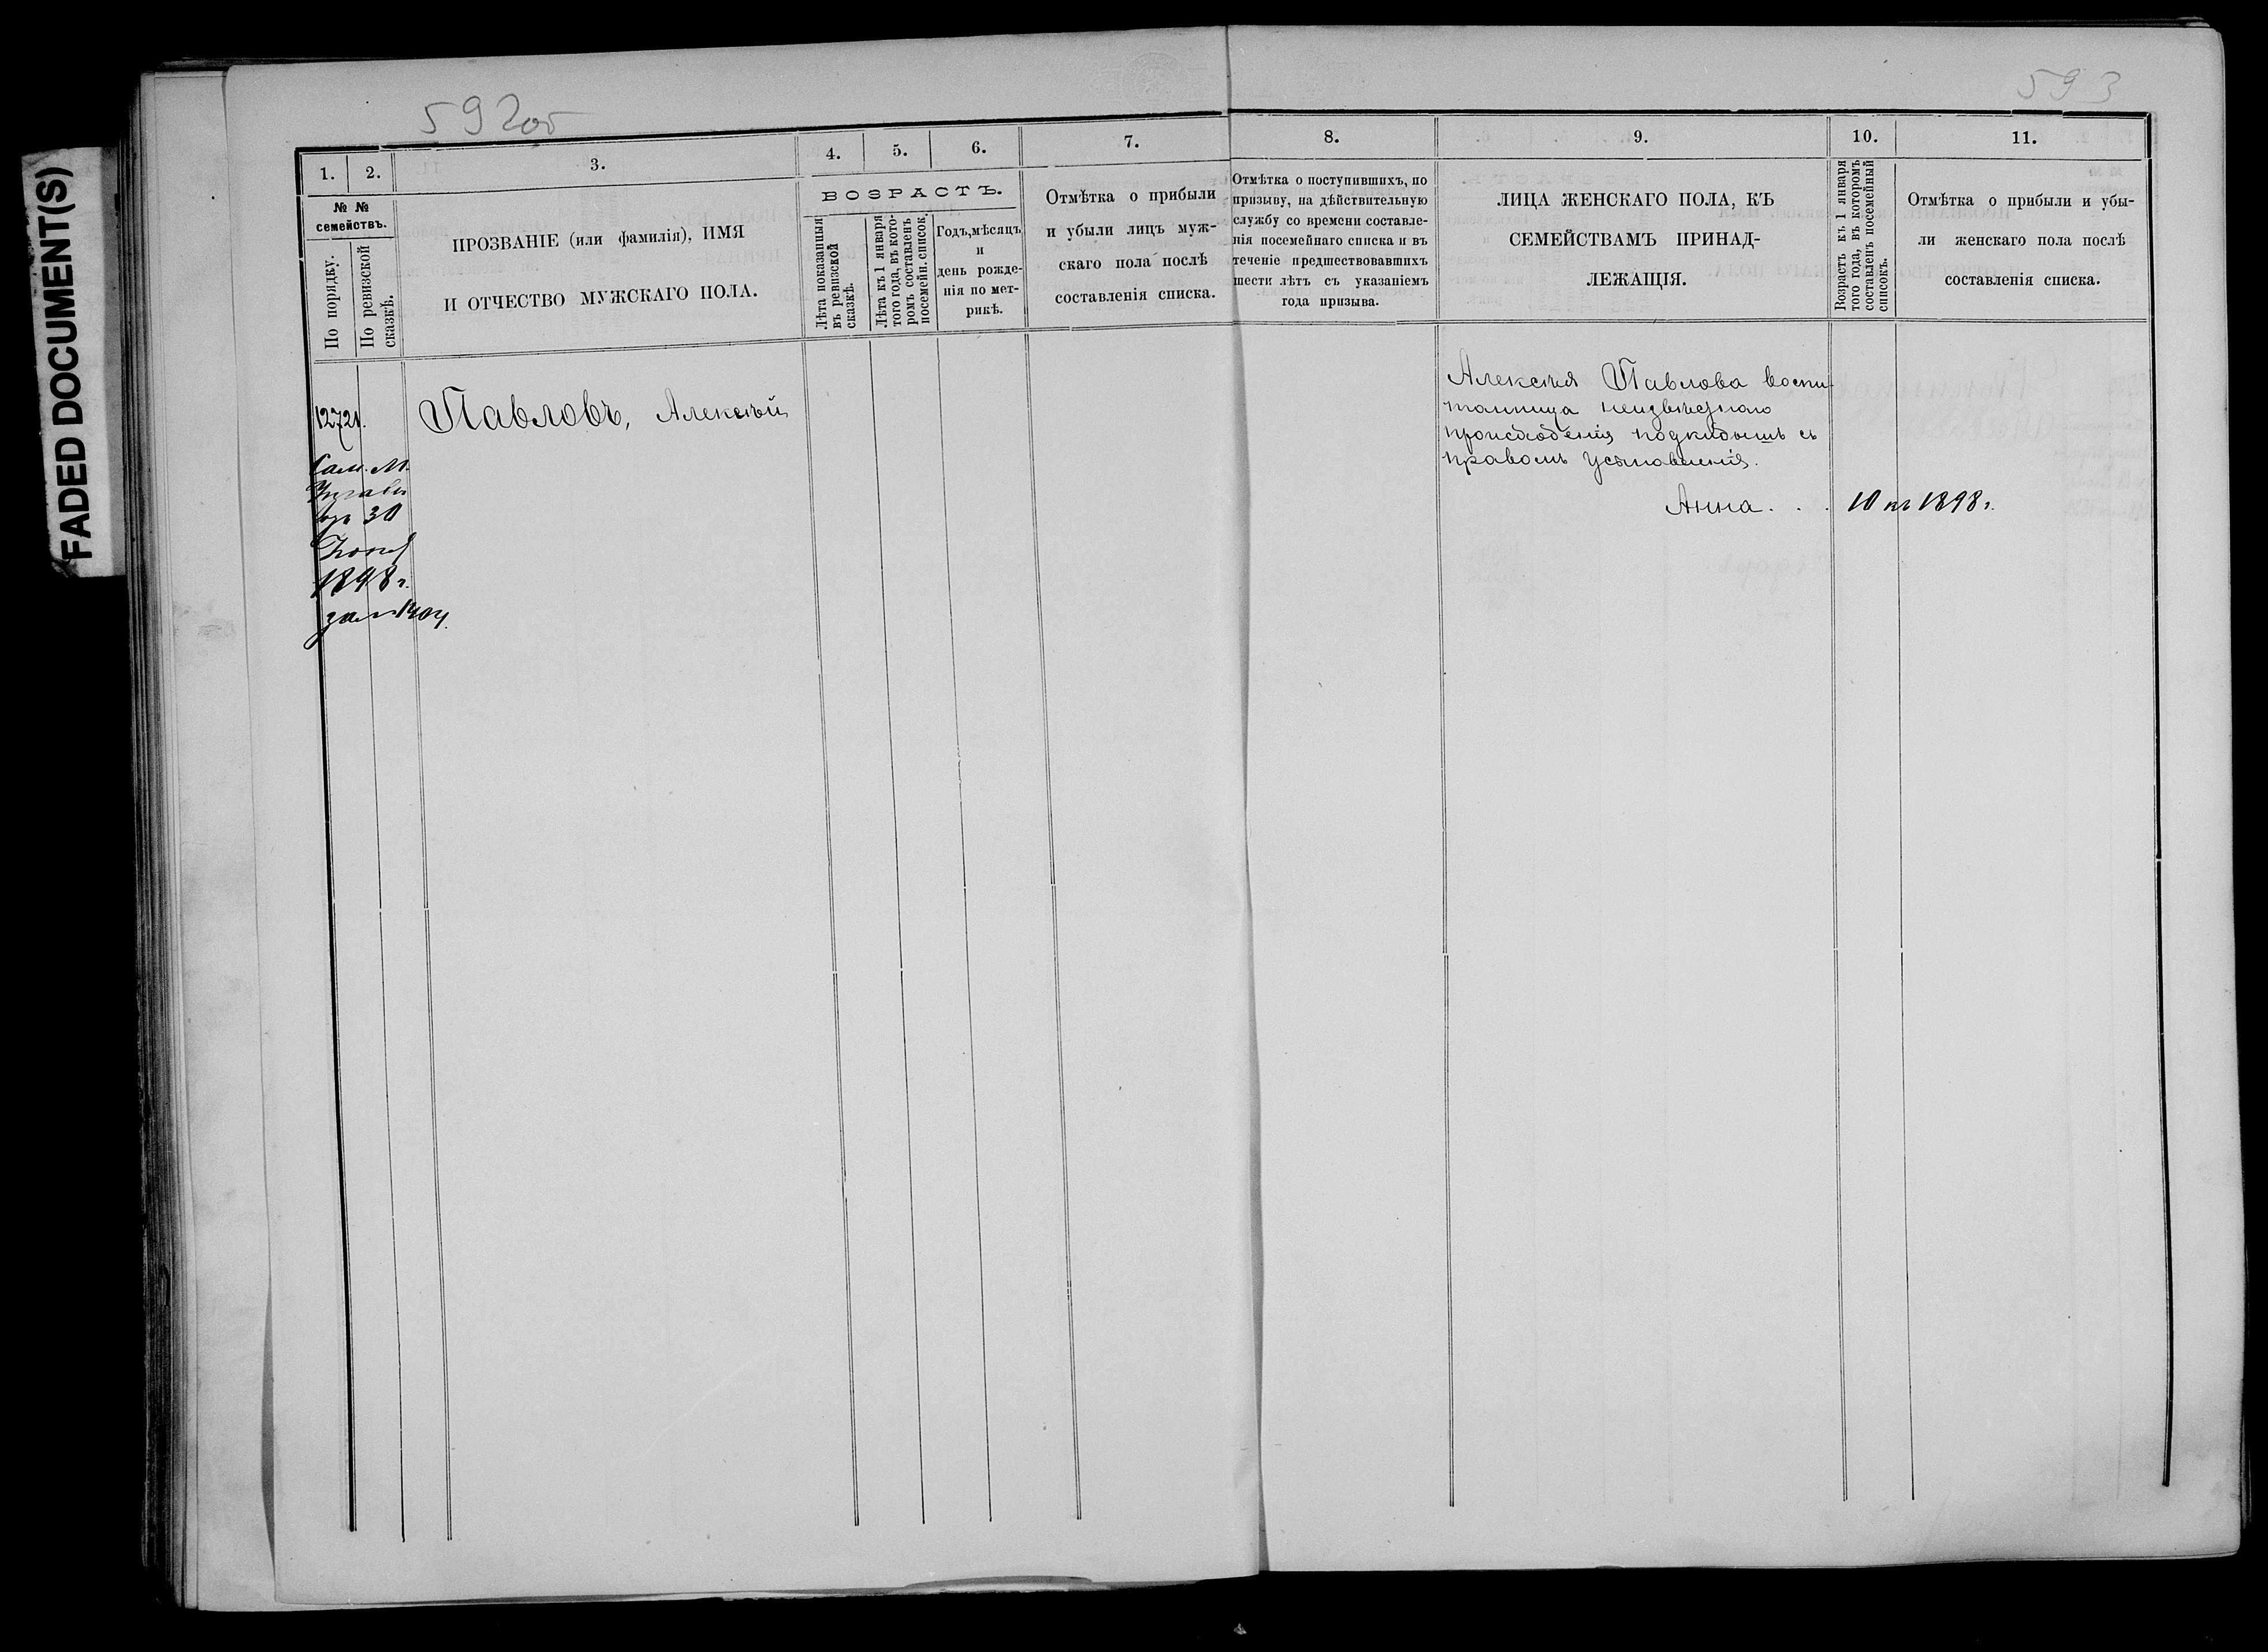 FADED DOCUMENT(S)
592об
593
1.
2.
3.
4.
5.
6.
7.
8.
9.
10.
11.
№ №
семействъ.
По порядку.
По ревизской
сказкѣ.
ПРОЗВАНІЕ (или фамилія), ИМЯ
И ОТЧЕСТВО МУЖСКАГО ПОЛА.
ВОЗРАСТЪ.
Лѣта показанныя
въ ревизской
сказкѣ.
Лѣта къ 1 января
того года, въ кото-
ромъ составленъ
посемейн. список.
Годъ, мѣсяцъ
и
день рожде-
нія по мет-
рикѣ.
Отмѣтка о прибыли
и убыли лицъ муж-
скаго пола послѣ
составленія списка.
Отмѣтка о поступившихъ, по
призыву, на дѣйствительную
службу со времени составле-
нія посемейнаго списка и въ
теченіе предшествовавшихъ
шести лѣтъ съ указаніемъ
года призыва.
ЛИЦА ЖЕНСКАГО ПОЛА, КЪ
СЕМЕЙСТВАМЪ ПРИНАД-
ЛЕЖАЩІЯ.
Возрастъ къ 1 января
того года, въ которомъ
составленъ посемейный
списокъ.
Отмѣтка о прибыли и убы-
ли женскаго пола послѣ
составленія списка.
12721.
Сам. М.
30
1898 г.
Павловъ, Алексѣй
Алексѣя Павлова воспи-
танница неизвѣстнаго
происхожденія подкидышъ съ
правомъ усыновленія.
Анна . . .
10 въ 1898 г.